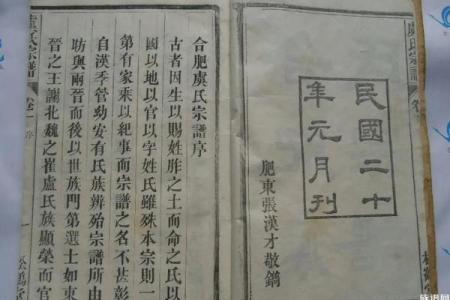 民國二十
年元月刊
肥東張漢才敬鐫
虞氏宗譜
合肥虞氏宗譜序
古者因生以賜姓胙之土而命之氏
國以地以官以字姓氏雖殊本宗則一
第有家乘以紀事而宗譜之名不甚彰
自漢季管幼安有氏族辨殆宗譜所由
昉與兩晉而後以世族門第選士如東
晉之王謝北魏之崔盧氏族顯榮而官
氏宗譜
卷一 序